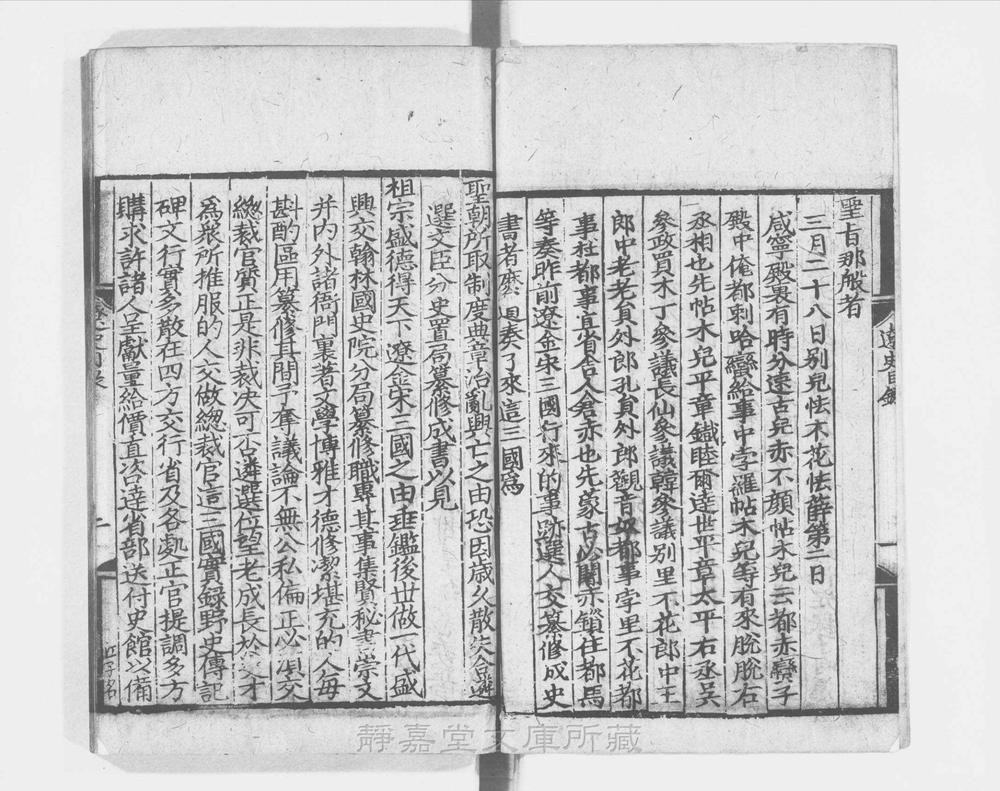 聖旨那般者
三月二十八日別兒怯不花怯薛第二日
咸寧殿裏有時分速古兒赤不顏帖木兒云都赤蠻子
殿中俺都剌哈蠻給事中孛羅帖木兒等有來脫脫右
丞相也先帖木兒平章鐵睦爾達世平章太平右丞吳
參政買术丁參議長仙參議韓參議別里不花郎中王
郎中老老員外郎孔員外郎觀音奴都事孛里不花都
事杜都事直省舍人倉赤也先蒙古必闍赤鎖住都馬
等奏昨前遼金宋三國行來的事跡選人交纂修成史
書者麽道奏了來這三國為
聖朝所取制度典章治亂興亡之由恐因歲久散失合遴
選文臣分史置局纂修成書以見
祖宗盛德得天下遼金宋三國之由垂鑑後世做一代盛
興交翰林國史院分局纂修職專其事集賢秘書崇文
并內外諸衙門裏著文學博雅才德修潔堪充的人每
斟酌區用纂修其間予奪議論不無公私偏正必須交
緫裁官質正是非裁決可否遴選位望老成長於史才
爲衆所推服的人交做緫裁官這三國實録野史傳記
碑文行實多散在四方交行省及各處正官提調多方
購求許諸人呈獻量給價直咨達省部送付史館以備
遼史目錄
二
靜嘉堂文庫所藏